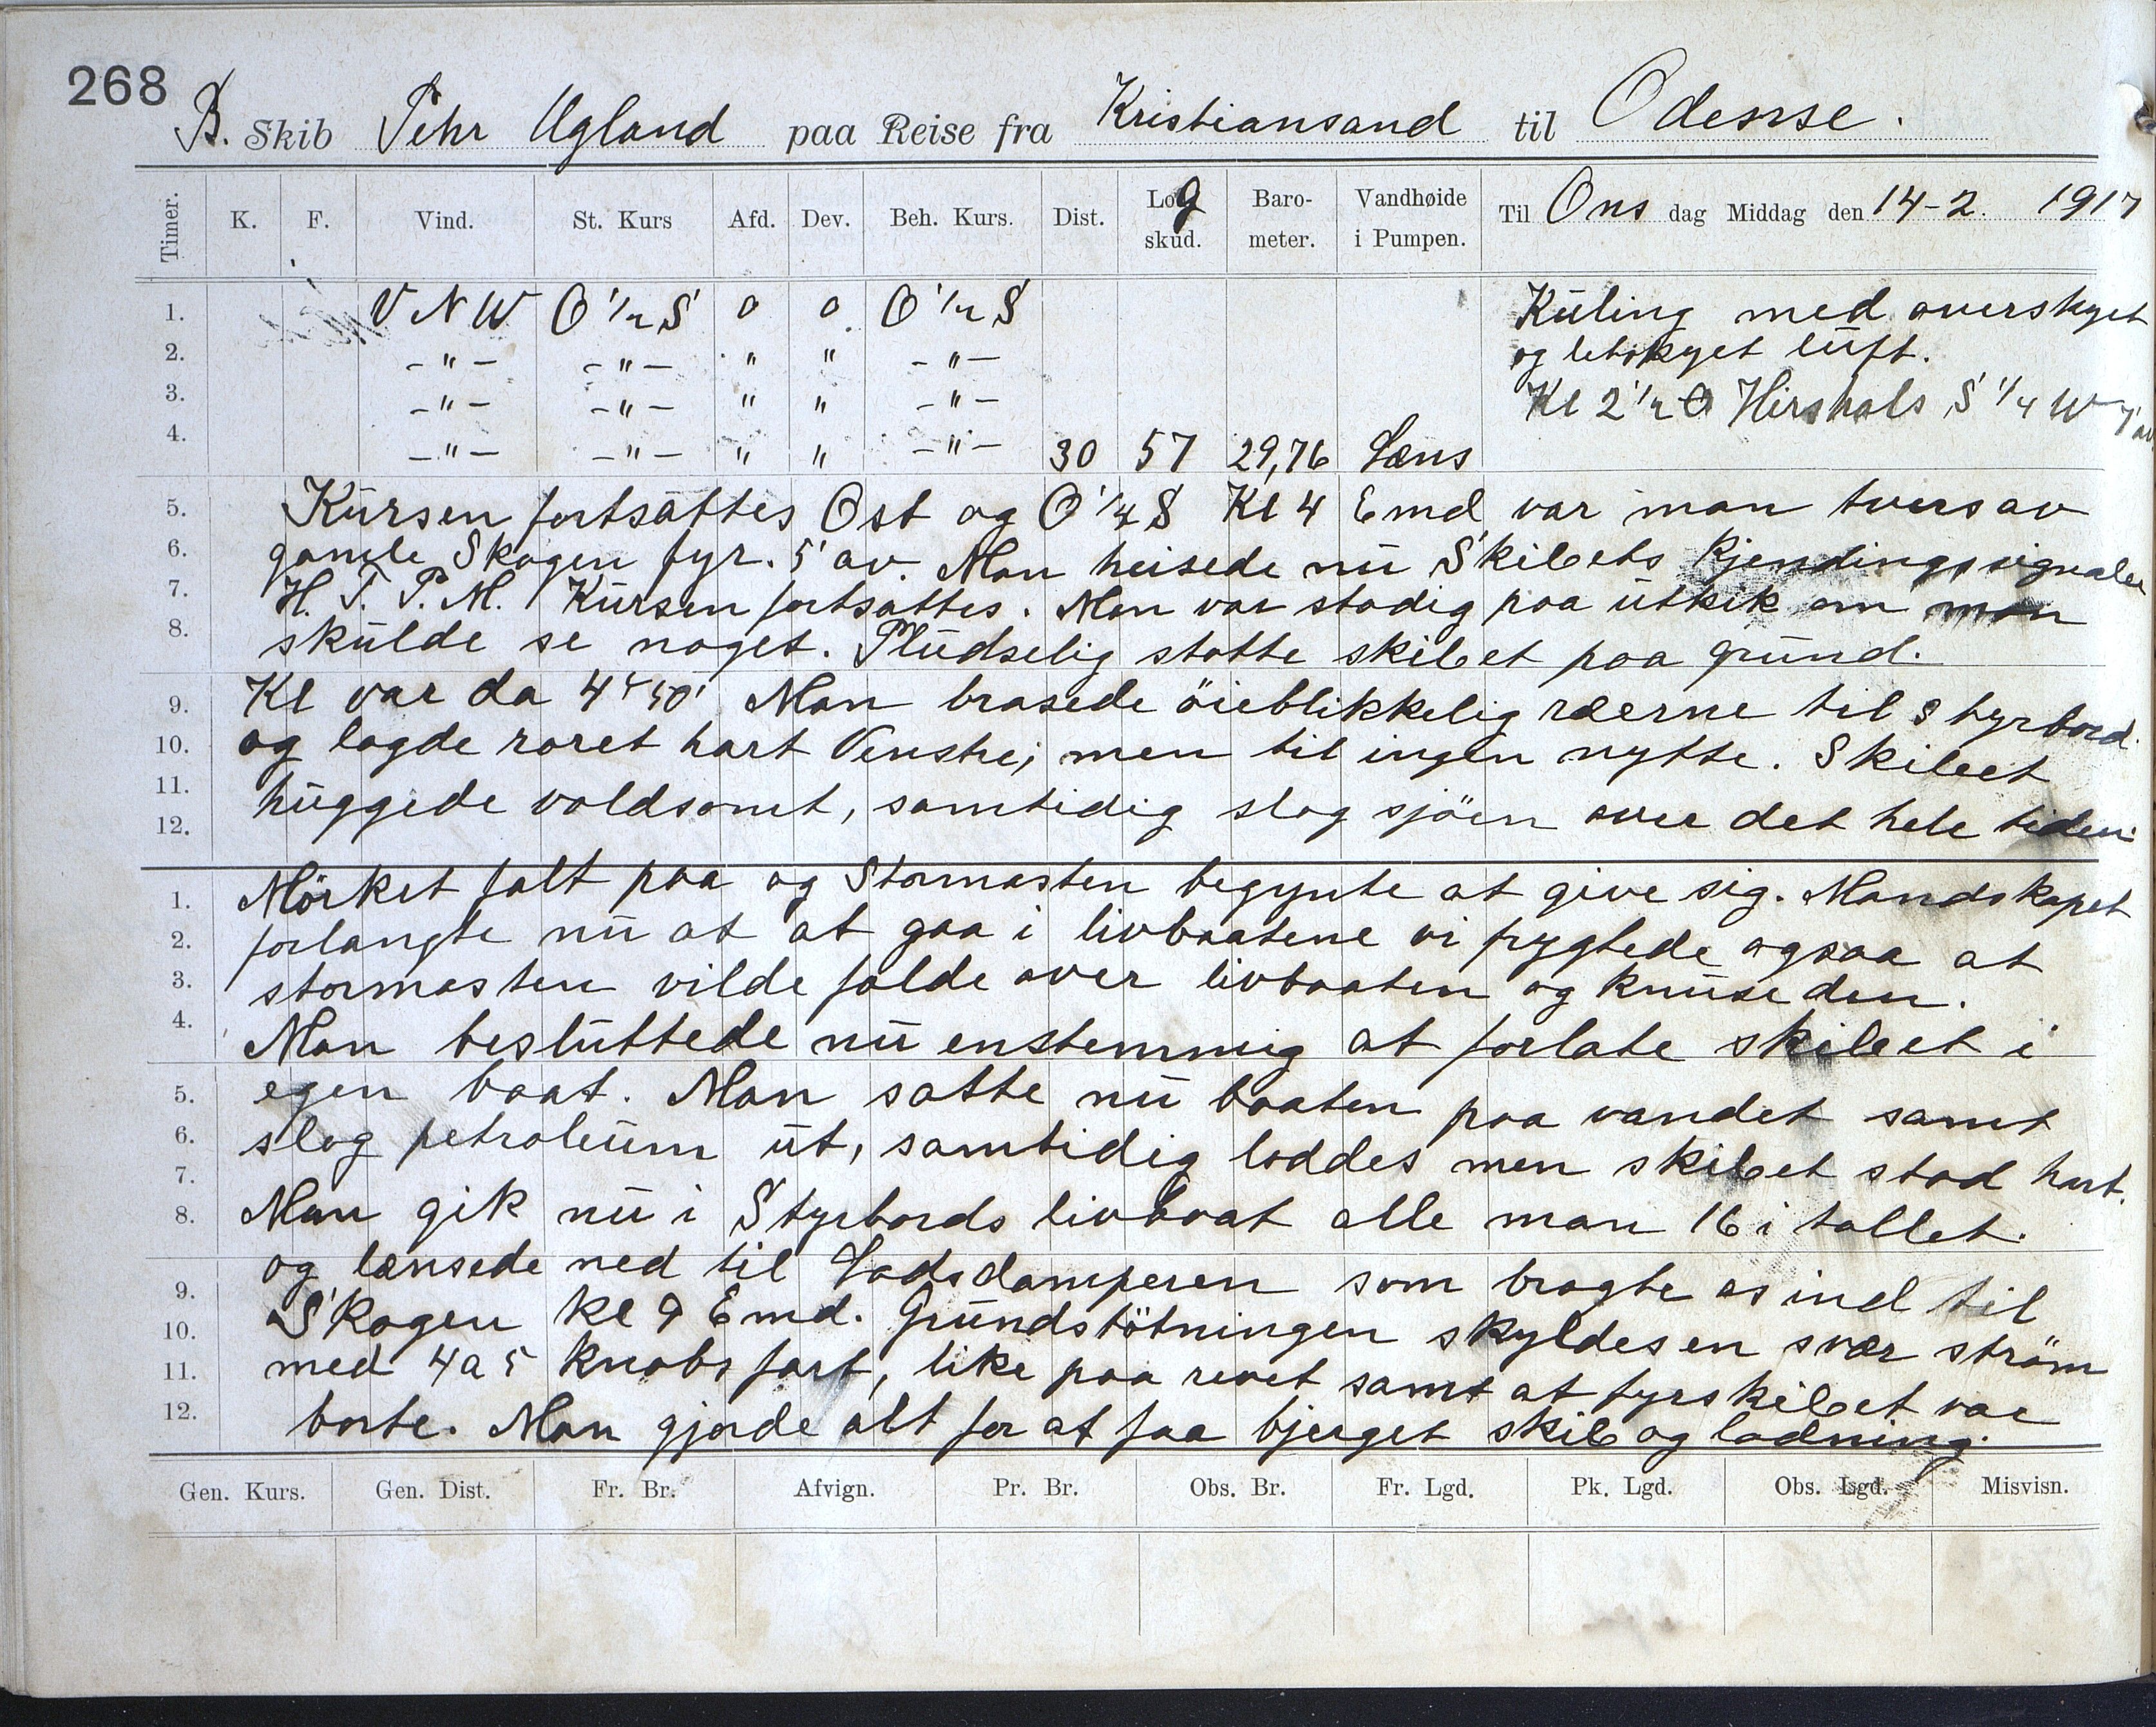 268
B. Skib Pehr Ugland paa Reise fra Kristiansand til Odense.
Timer. K. F. Vind. St. Kurs Afd. Dev. Beh. Kurs. Dist. Log skud. Baro-meter. Vandhøide i Pumpen. Til Ons dag Middag den 14-2. 1917
1. VNW O ½ S 0 0. O ½ S Kuling med overskyet
2. -"- -"- " " -"- og letskyet luft.
3. -"- -"- " " -"- Kl 2½ Hirshals S ¼ W 7'
4. -"- -"- " " -"- 30 57 29,76 Læns
5. Kursen fortsattes Ost og O ½ S Kl 4 Emd var man tvers av
6. gamle Skagen fyr. 5' av. Man heisede nu Skibets Kjendingssignaler
7. H. T. P. M. Kursen fortsattes. Man var stadig paa utkik om man
8. skulde se noget. Pludselig støtte skibet paa grund.
9. Kl var da 4 50' Man brasede öieblikkelig ræerne til styrbord
10. og lagde roret hart Venstre; men til ingen nytte. Skibet
11. huggede voldsomt, samtidig slog sjöen over det hele tiden.
12.
1. Mörket falt paa og Stormasten begynte at give sig. Mandskapet
2. forlangte nu at at gaa i livbaatene vi frygtede ogsaa at
3. stormasten vilde falde over livbaaten og knuse den.
4. Man besluttede nu enstemmig at forlate skibet i
5. egen baat. Man satte nu baaten paa vandet samt
6. slog petroleum ut, samtidig loddes men skibet stod hart.
7.
8. Man gik nu i Styrbords livbaat alle man 16 i tallet.
9. og lænsede ned til Lodsdamperen som bragte os ind til
10. Skagen kl 9 Emd. Grundstötningen skyldes en svær ström
11. med 4 a 5 knobs fart, like paa revet samt at fyrskibet var
12. borte. Man gjorde alt for at faa bjerget skib og ladning.
Gen. Kurs. Gen. Dist. Fr. Br. Afvign. Pr. Br. Obs. Br. Fr. Lgd. Pk. Lgd. Obs. Lgd. Misvisn.